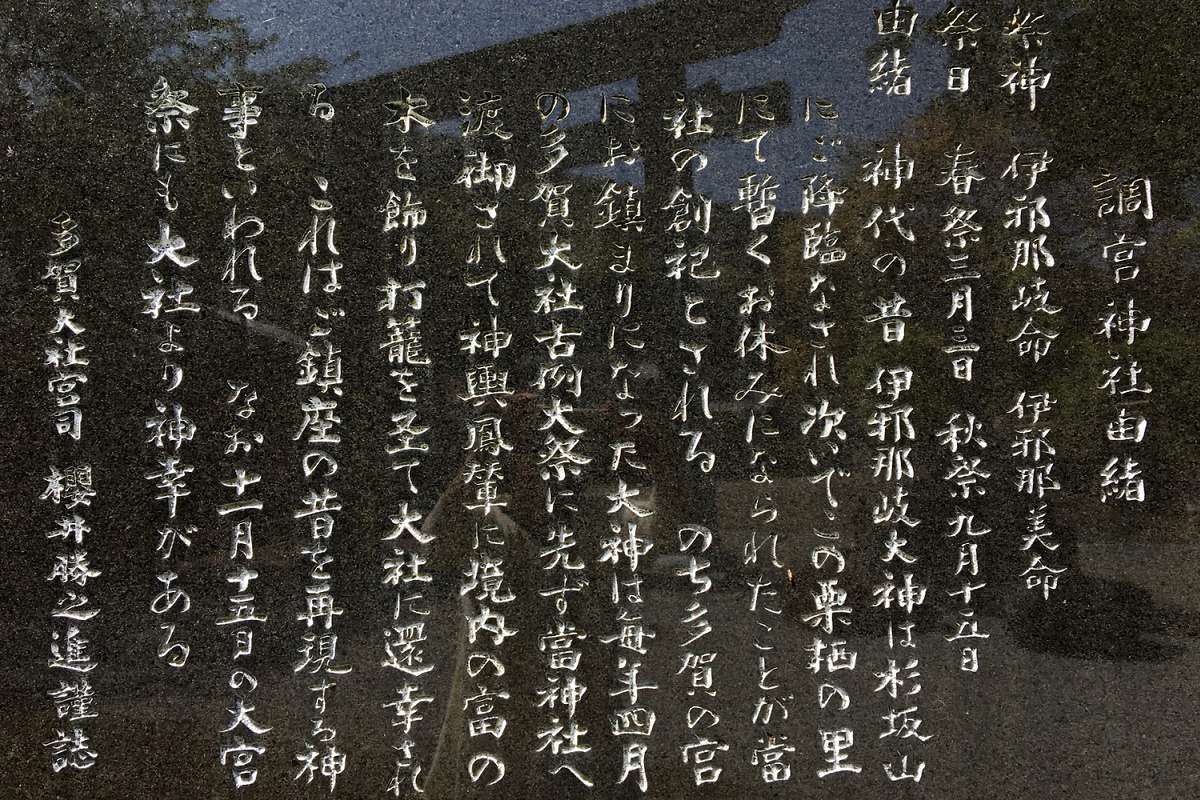 調宮神社由緒
祭神 伊邪那岐命 伊邪那美命
祭日 春祭三月三日 秋祭九月十五日
由緒 神代の昔 伊邪那岐大神は杉坂山
にご降臨なされ次いでこの栗栖の里
にて暫くお休みになられたことが當
社の創祀とされる のち多賀の宮
にお鎮まりになった大神は毎年四月
の多賀大社古例大祭に先ず當神社へ
渡御されて神輿鳳輦に境内の富の
木を飾り打籠を立て大社に還幸され
る これはご鎮座の昔を再現する神
事といわれる なお十一月十五日の大宮
祭にも大社より神幸がある
多賀大社宮司 櫻井勝之進謹誌